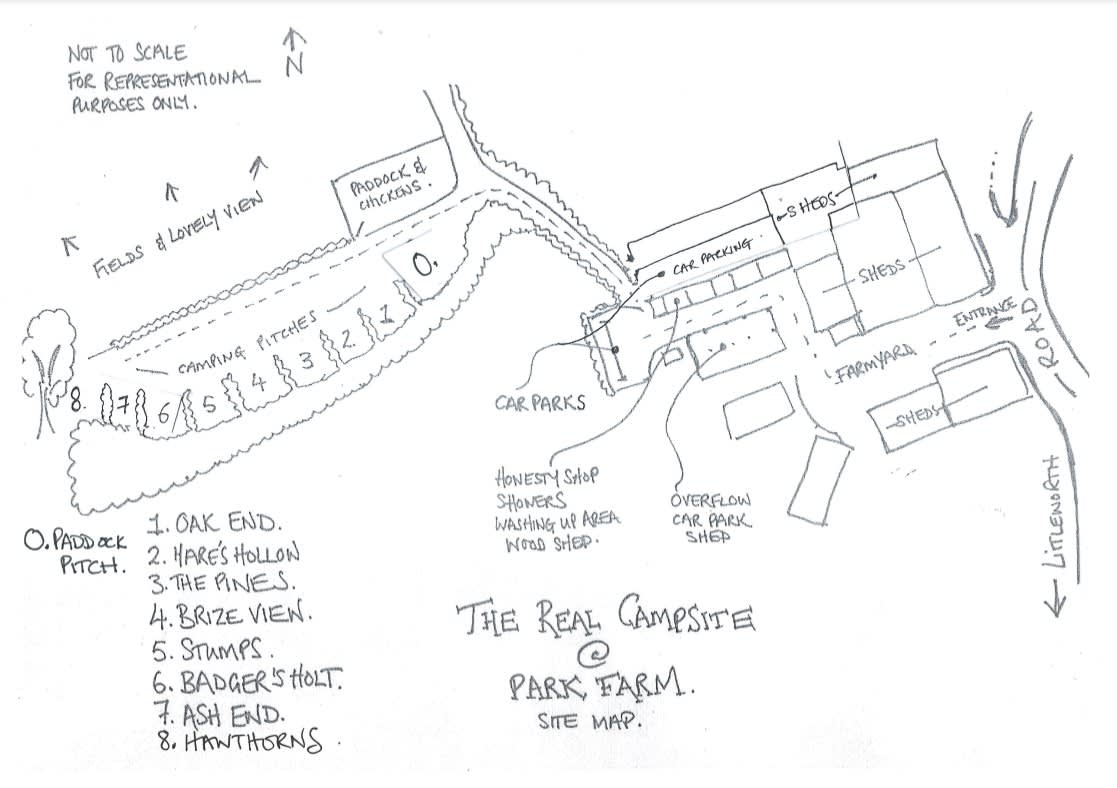 NOT TO SCALE
FOR REPRESENTATIONAL
PURPOSES ONLY.
N
FIELDS & LOVELY VIEW
PADDOCK &
CHICKENS.
0.
CAMPING PITCHES
1
2
3
4
5
6
7
8.
SHEDS
CAR PARKING
SHEDS
ENTRANCE
ROAD
FARMYARD
SHEDS
CAR PARKS
HONESTY SHOP
SHOWERS
WASHING UP AREA
WOOD SHED.
OVERFLOW
CAR PARK
SHED
LITTLEWORTH
0. PADDOCK
PITCH.
1. OAK END.
2. HARE'S HOLLOW
3. THE PINES.
4. BRIZE VIEW.
5. STUMPS.
6. BADGER'S HOLT.
7. ASH END.
8. HAWTHORNS.
THE REAL CAMPSITE
@
PARK FARM.
SITE MAP.